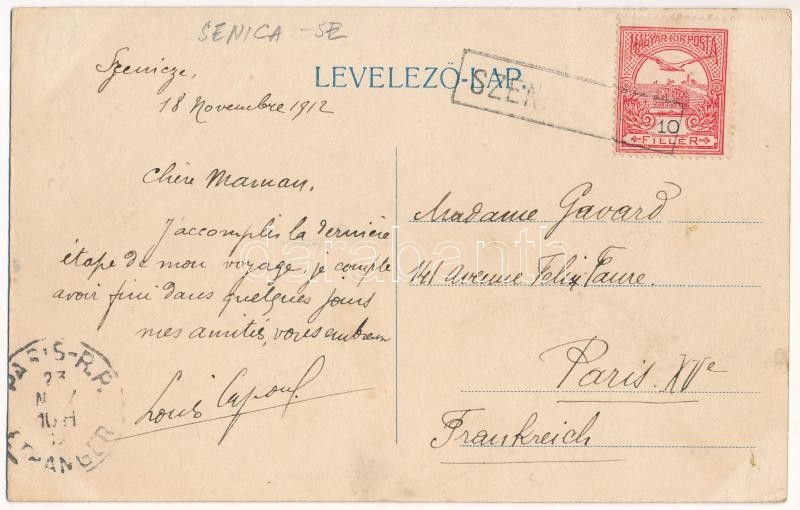 SENICA - SE
Szenicze,
18 Novembre 1912
LEVELEZŐ-LAP.
SZEN
MAGYAR KIR. POSTA
10
FILLÉR
Chère Maman.
J'accomplis la dernière
étape de mon voyage, je compte
avoir fini dans quelques jours
mes amitiés, vous embrasse
Louis
Madame Gavard
141 Avenue Felix Faure.
Paris. XVe
Frankreich
PARIS-R.P.
23
10H
ETRANGER
darabanth